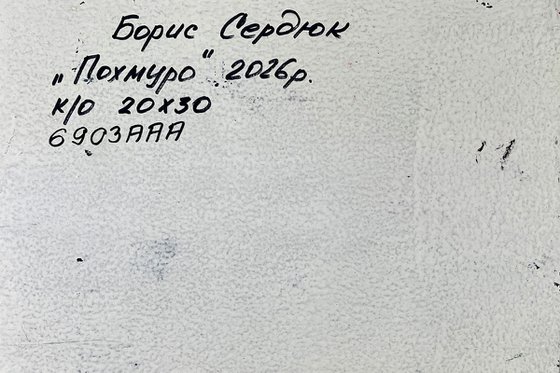 Борис Сердюк
„Похмуро" 2026р.
к/о 20х30
6903AAA